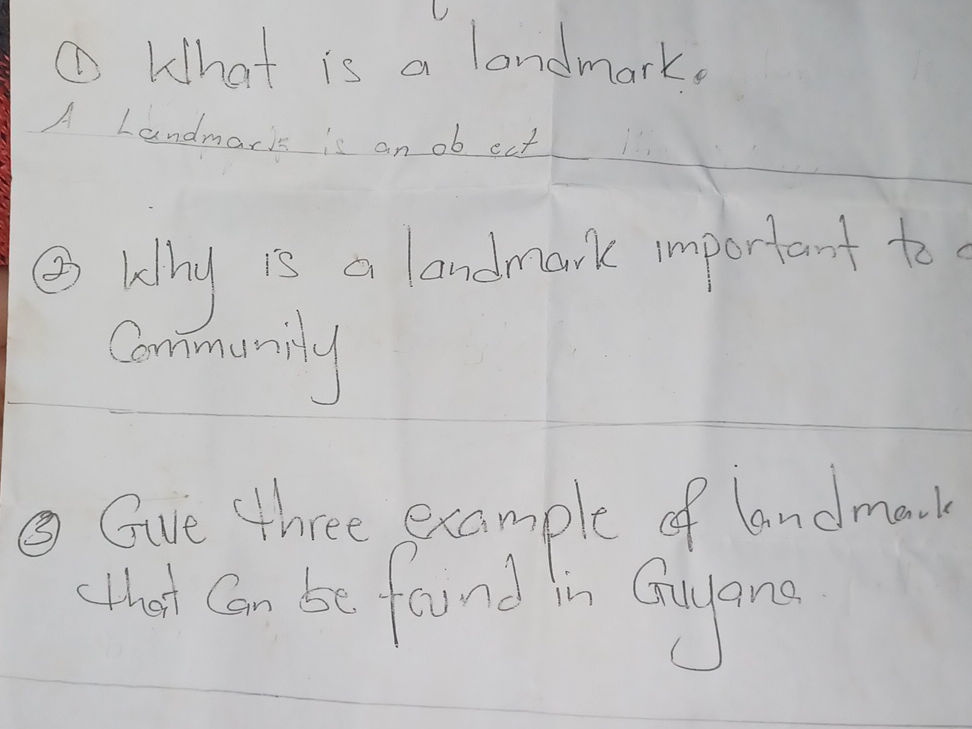 ① What is a landmark.
A Landmark is an ob ect
② Why is a landmark important to a
Community
③ Give three example of landmark
that Can be found in Guyana.